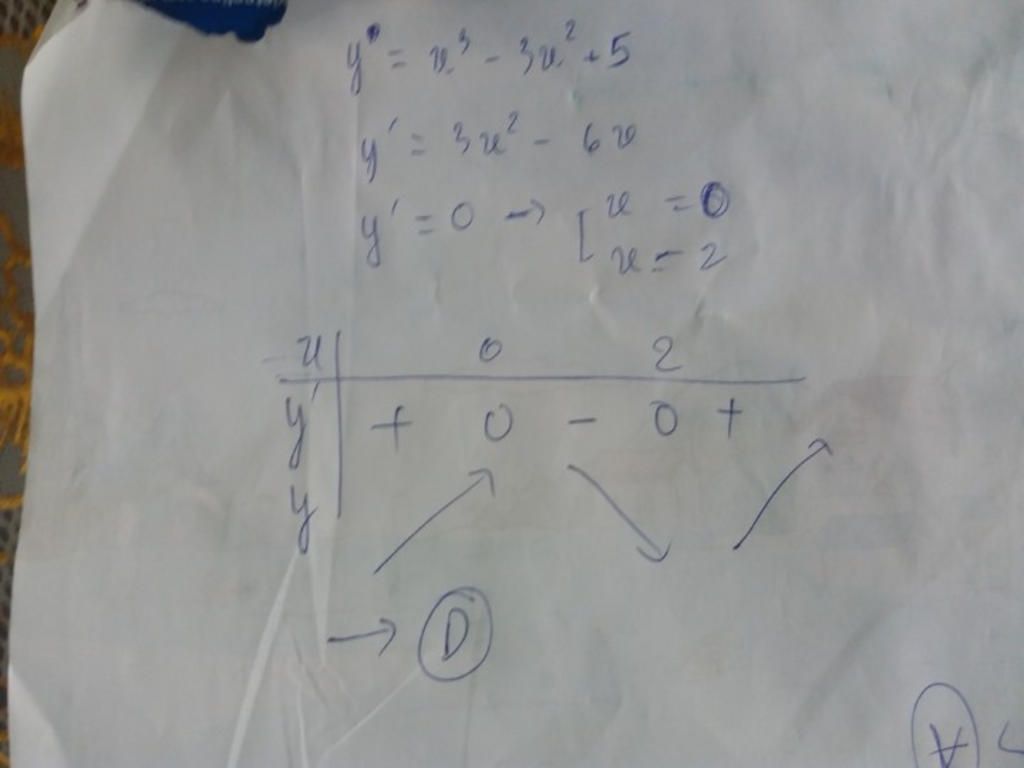 y = x³ - 3x² + 5
y' = 3x² - 6x
y' = 0 → [ x = 0
x = 2
x | 0 2
y' | + 0 - 0 +
y | ↗ ↘ ↗
→ D